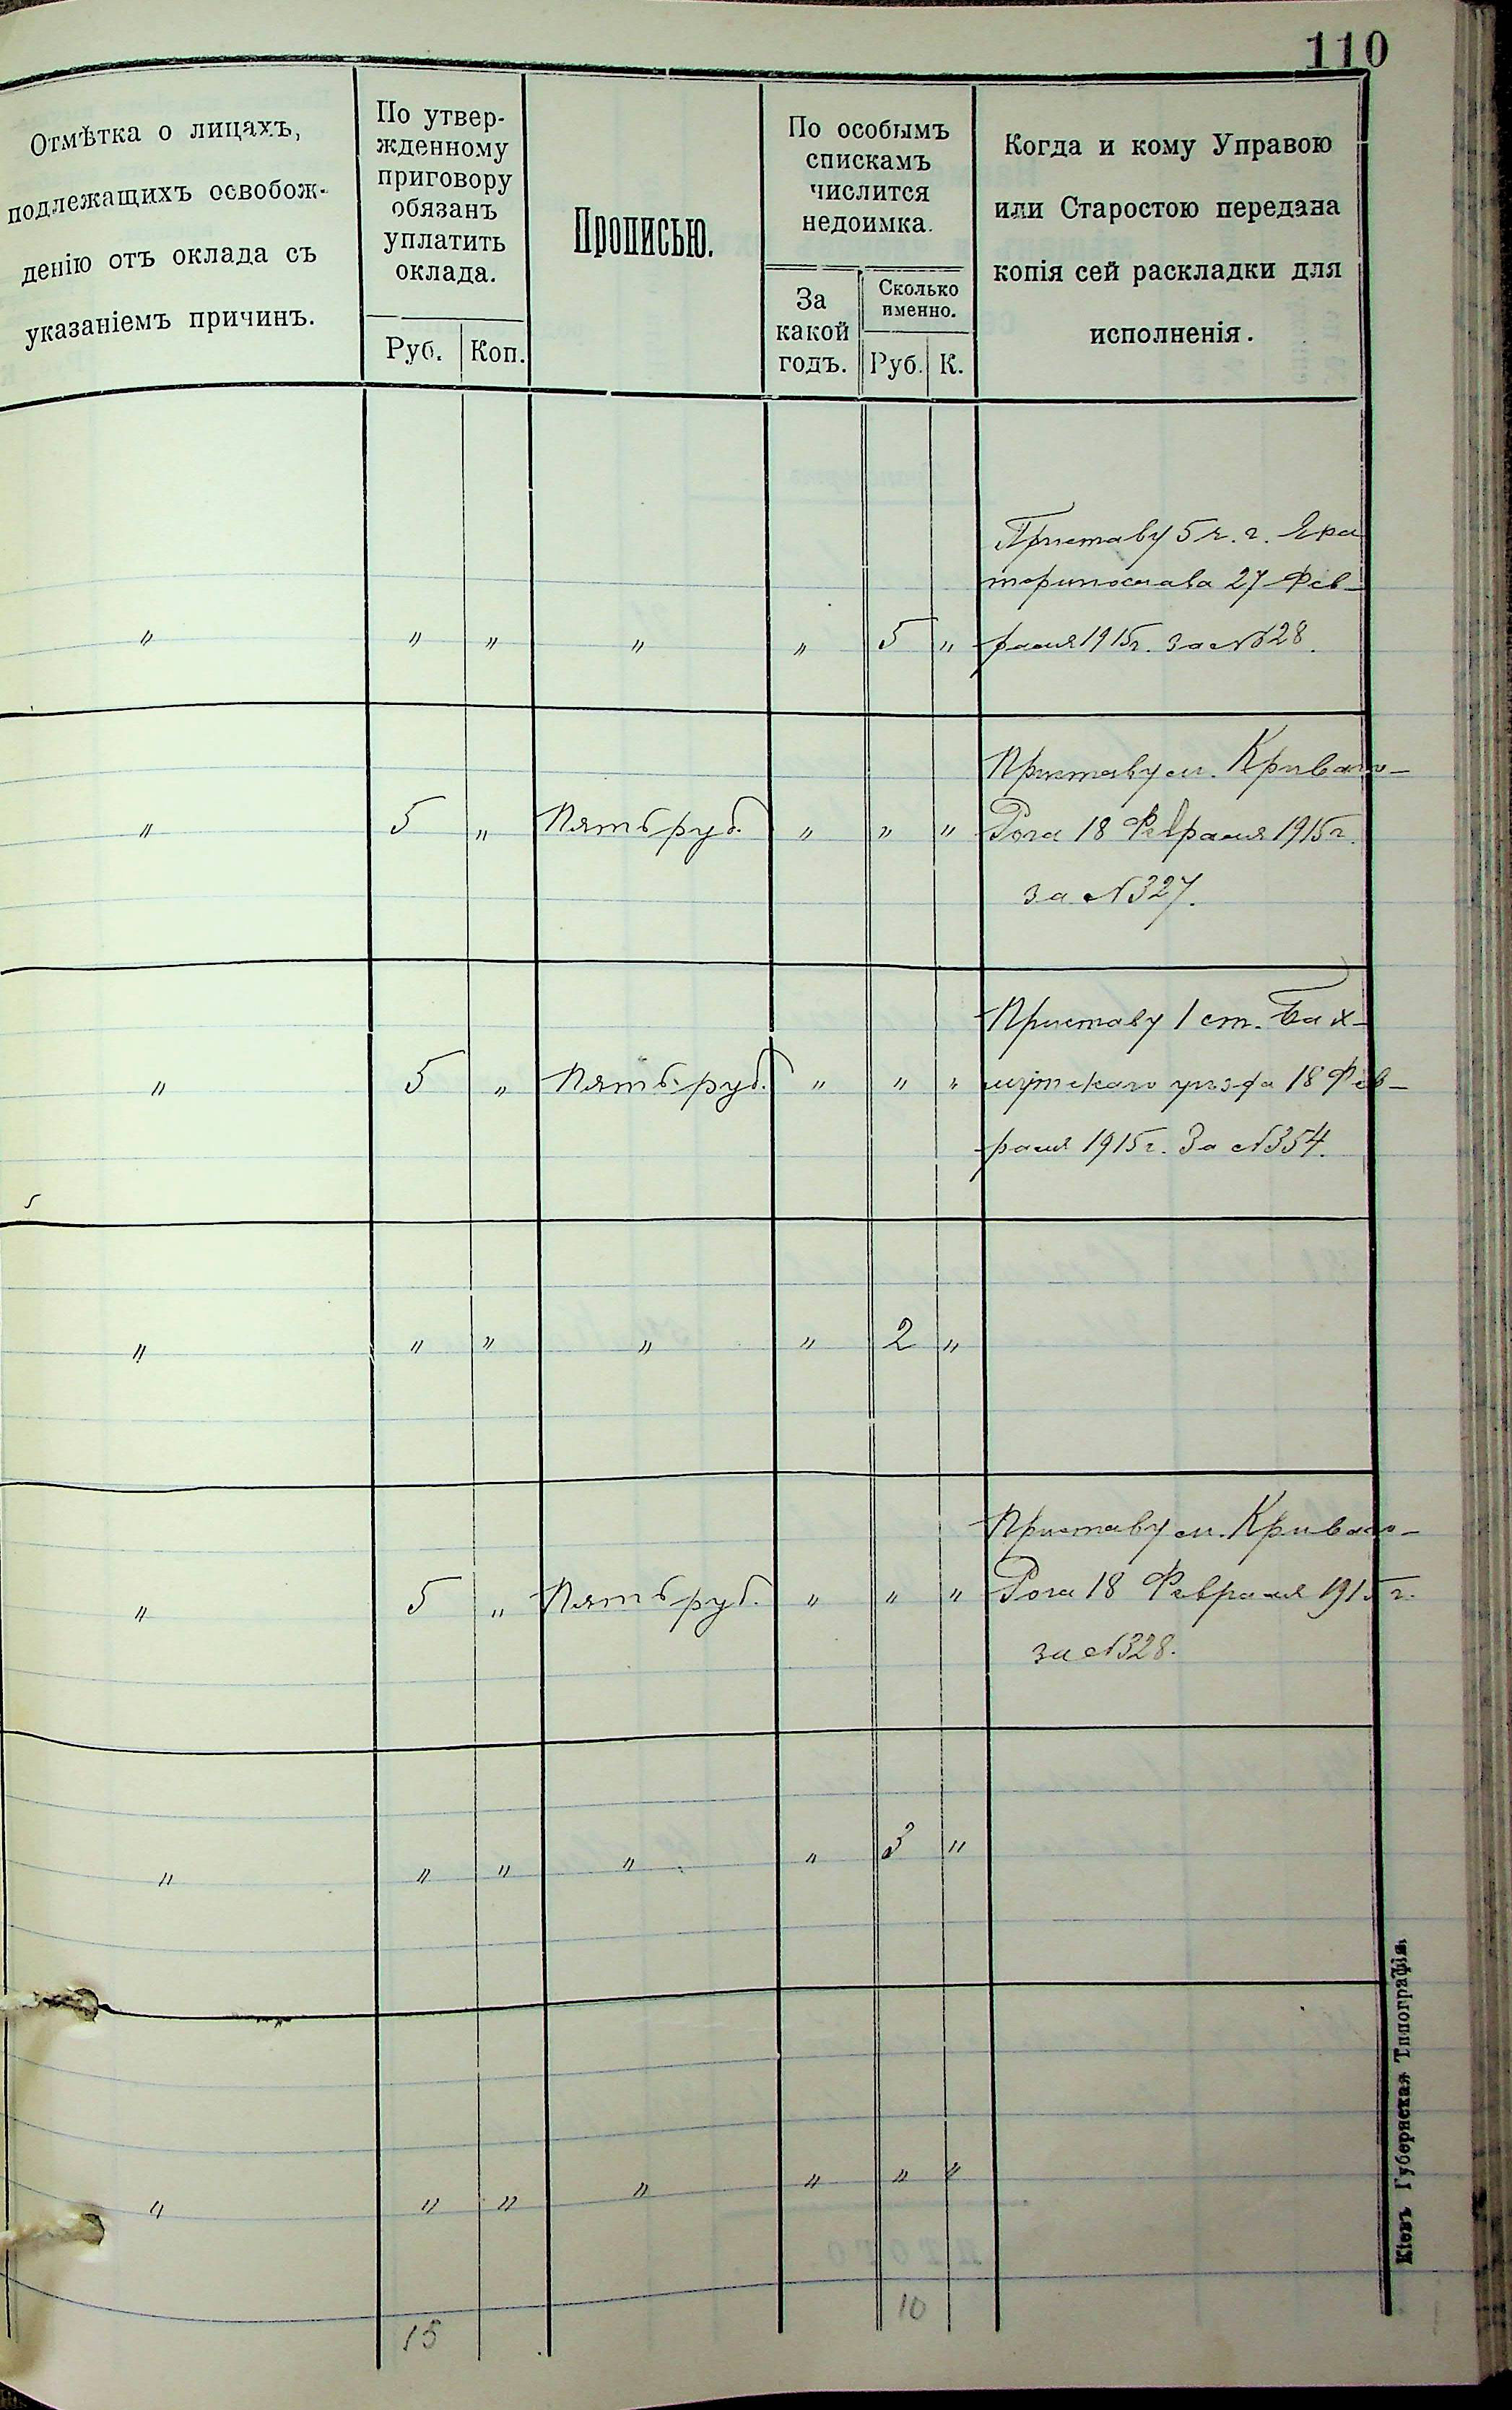 110
Отмѣтка о лицахъ,
подлежащихъ освобож-
денію отъ оклада съ
указаніемъ причинъ.
По утвер-
жденному
приговору
обязанъ
уплатить
оклада.
Руб. Коп.
Прописью.
По особымъ
спискамъ
числится
недоимка.
За
какой
годъ.
Сколько
именно.
Руб. К.
Когда и кому Управою
или Старостою передана
копія сей раскладки для
исполненія.
Приставу 5 ч. г. Ека
теринослава 27 Фев-
" " " " " 5 " раля 1915 г. за №628.
Приставу м. Кривого-
" 5 " Пять руб. " " " Рога 18 Февраля 1915 г.
за №327.
Приставу 1 ст. Бах-
" 5 " Пять руб. " " " мутскаго уѣзда 18 Фев-
раля 1915 г. За №354.
" " " " " 2 "
Приставу м. Кривого-
" 5 " Пять руб. " " " Рога 18 Февраля 1915 г.
за №328.
" " " " " 3 "
" " " " " " "
15 10
Кіевъ Губернская Типографія.